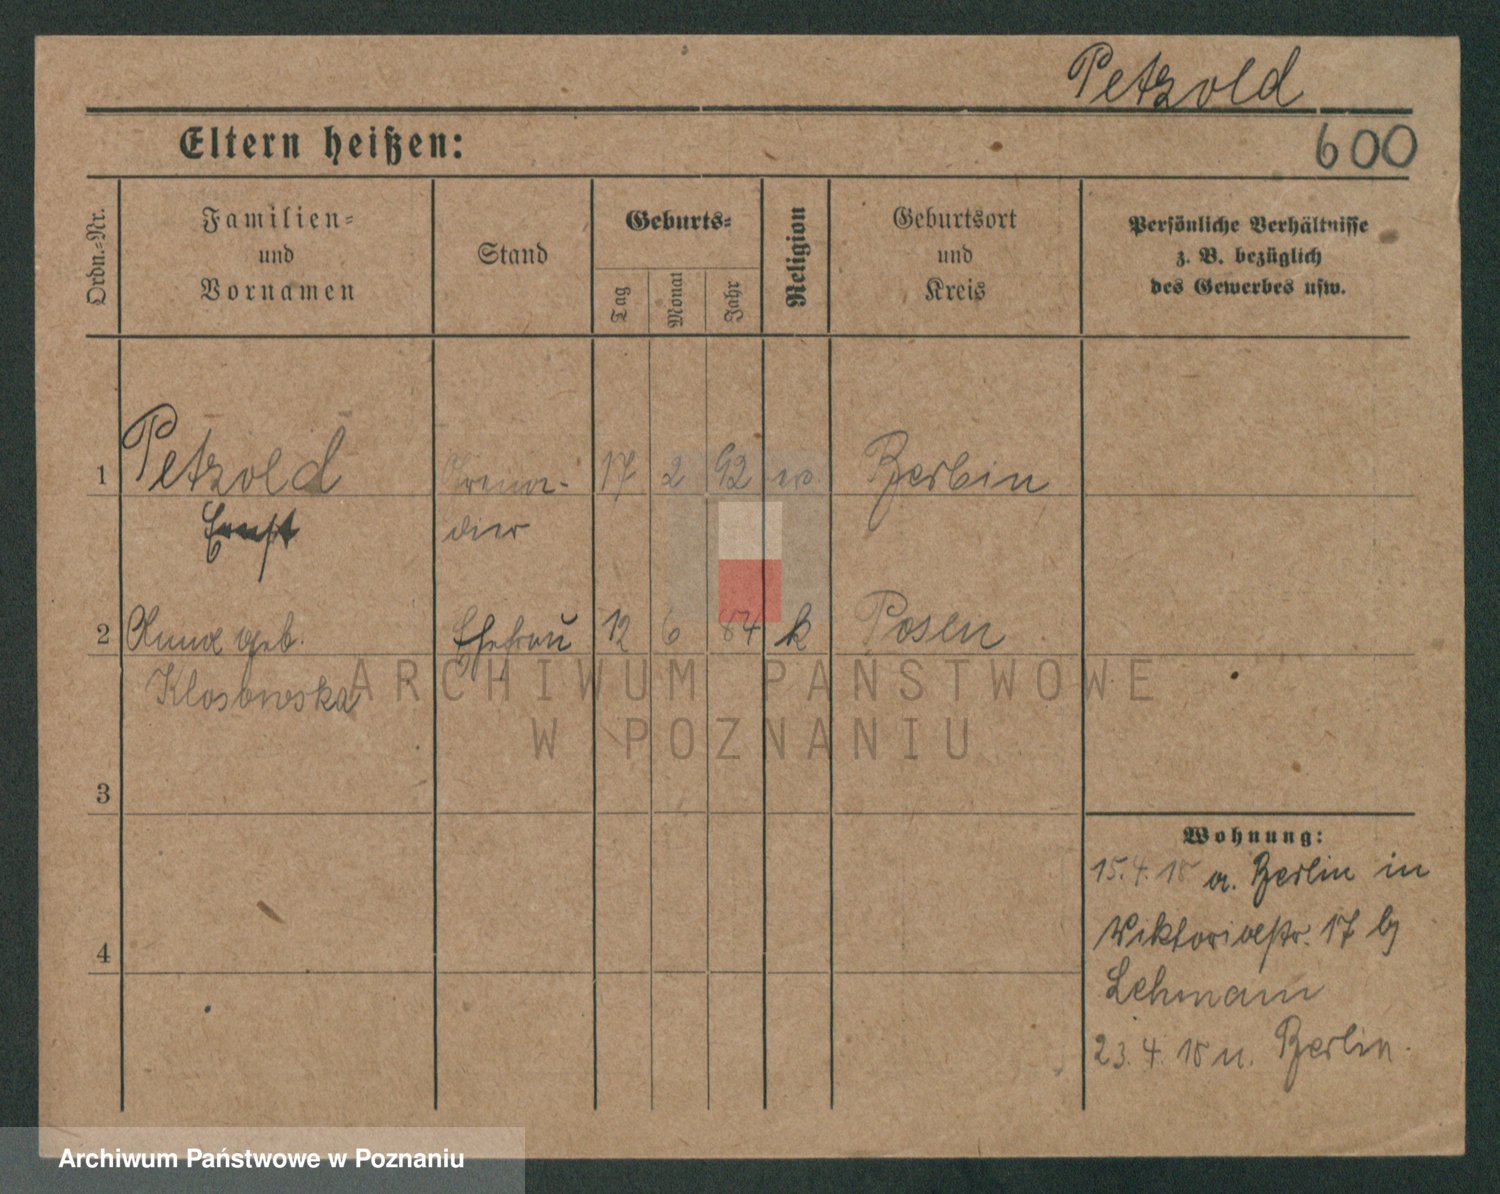 Petzold
Eltern heißen:
600
Ordn.-Nr.
Familien-
und
Vornamen
Stand
Geburts-
Tag
Monat
Jahr
Religion
Geburtsort
und
Kreis
Persönliche Verhältnisse
z. B. bezüglich
des Gewerbes usw.
1 Petzold Grena- 17 2 92 ev. Berlin
Ernst dier
2 Anna geb. Ehefrau 12 6 84 k Posen
Klosowska
3
4
Wohnung:
15. 4. 18 a. Berlin in
Viktoriastr. 17 bj
Lehmann
23. 4. 18 n. Berlin.
ARCHIWUM PAŃSTWOWE
W POZNANIU
Archiwum Państwowe w Poznaniu